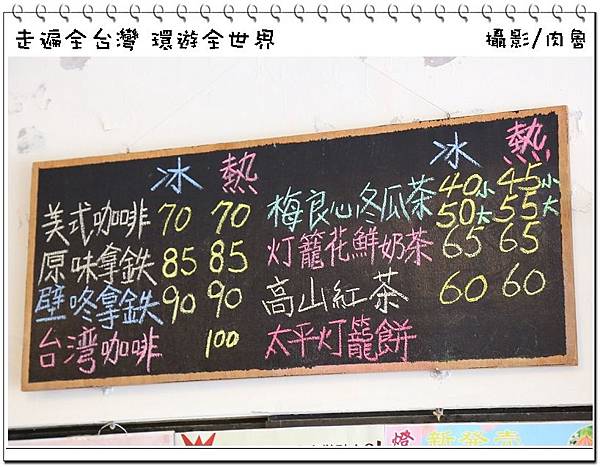 走遍全台灣 環遊全世界 攝影/肉魯
冰 熱
美式咖啡 70 70
原味拿鉄 85 85
壁咚拿鉄 90 90
台湾咖啡 100
冰 熱
梅良心冬瓜茶 40小 45小
50大 55大
灯籠花鮮奶茶 65 65
高山紅茶 60 60
太平灯籠餅
燈 新発売